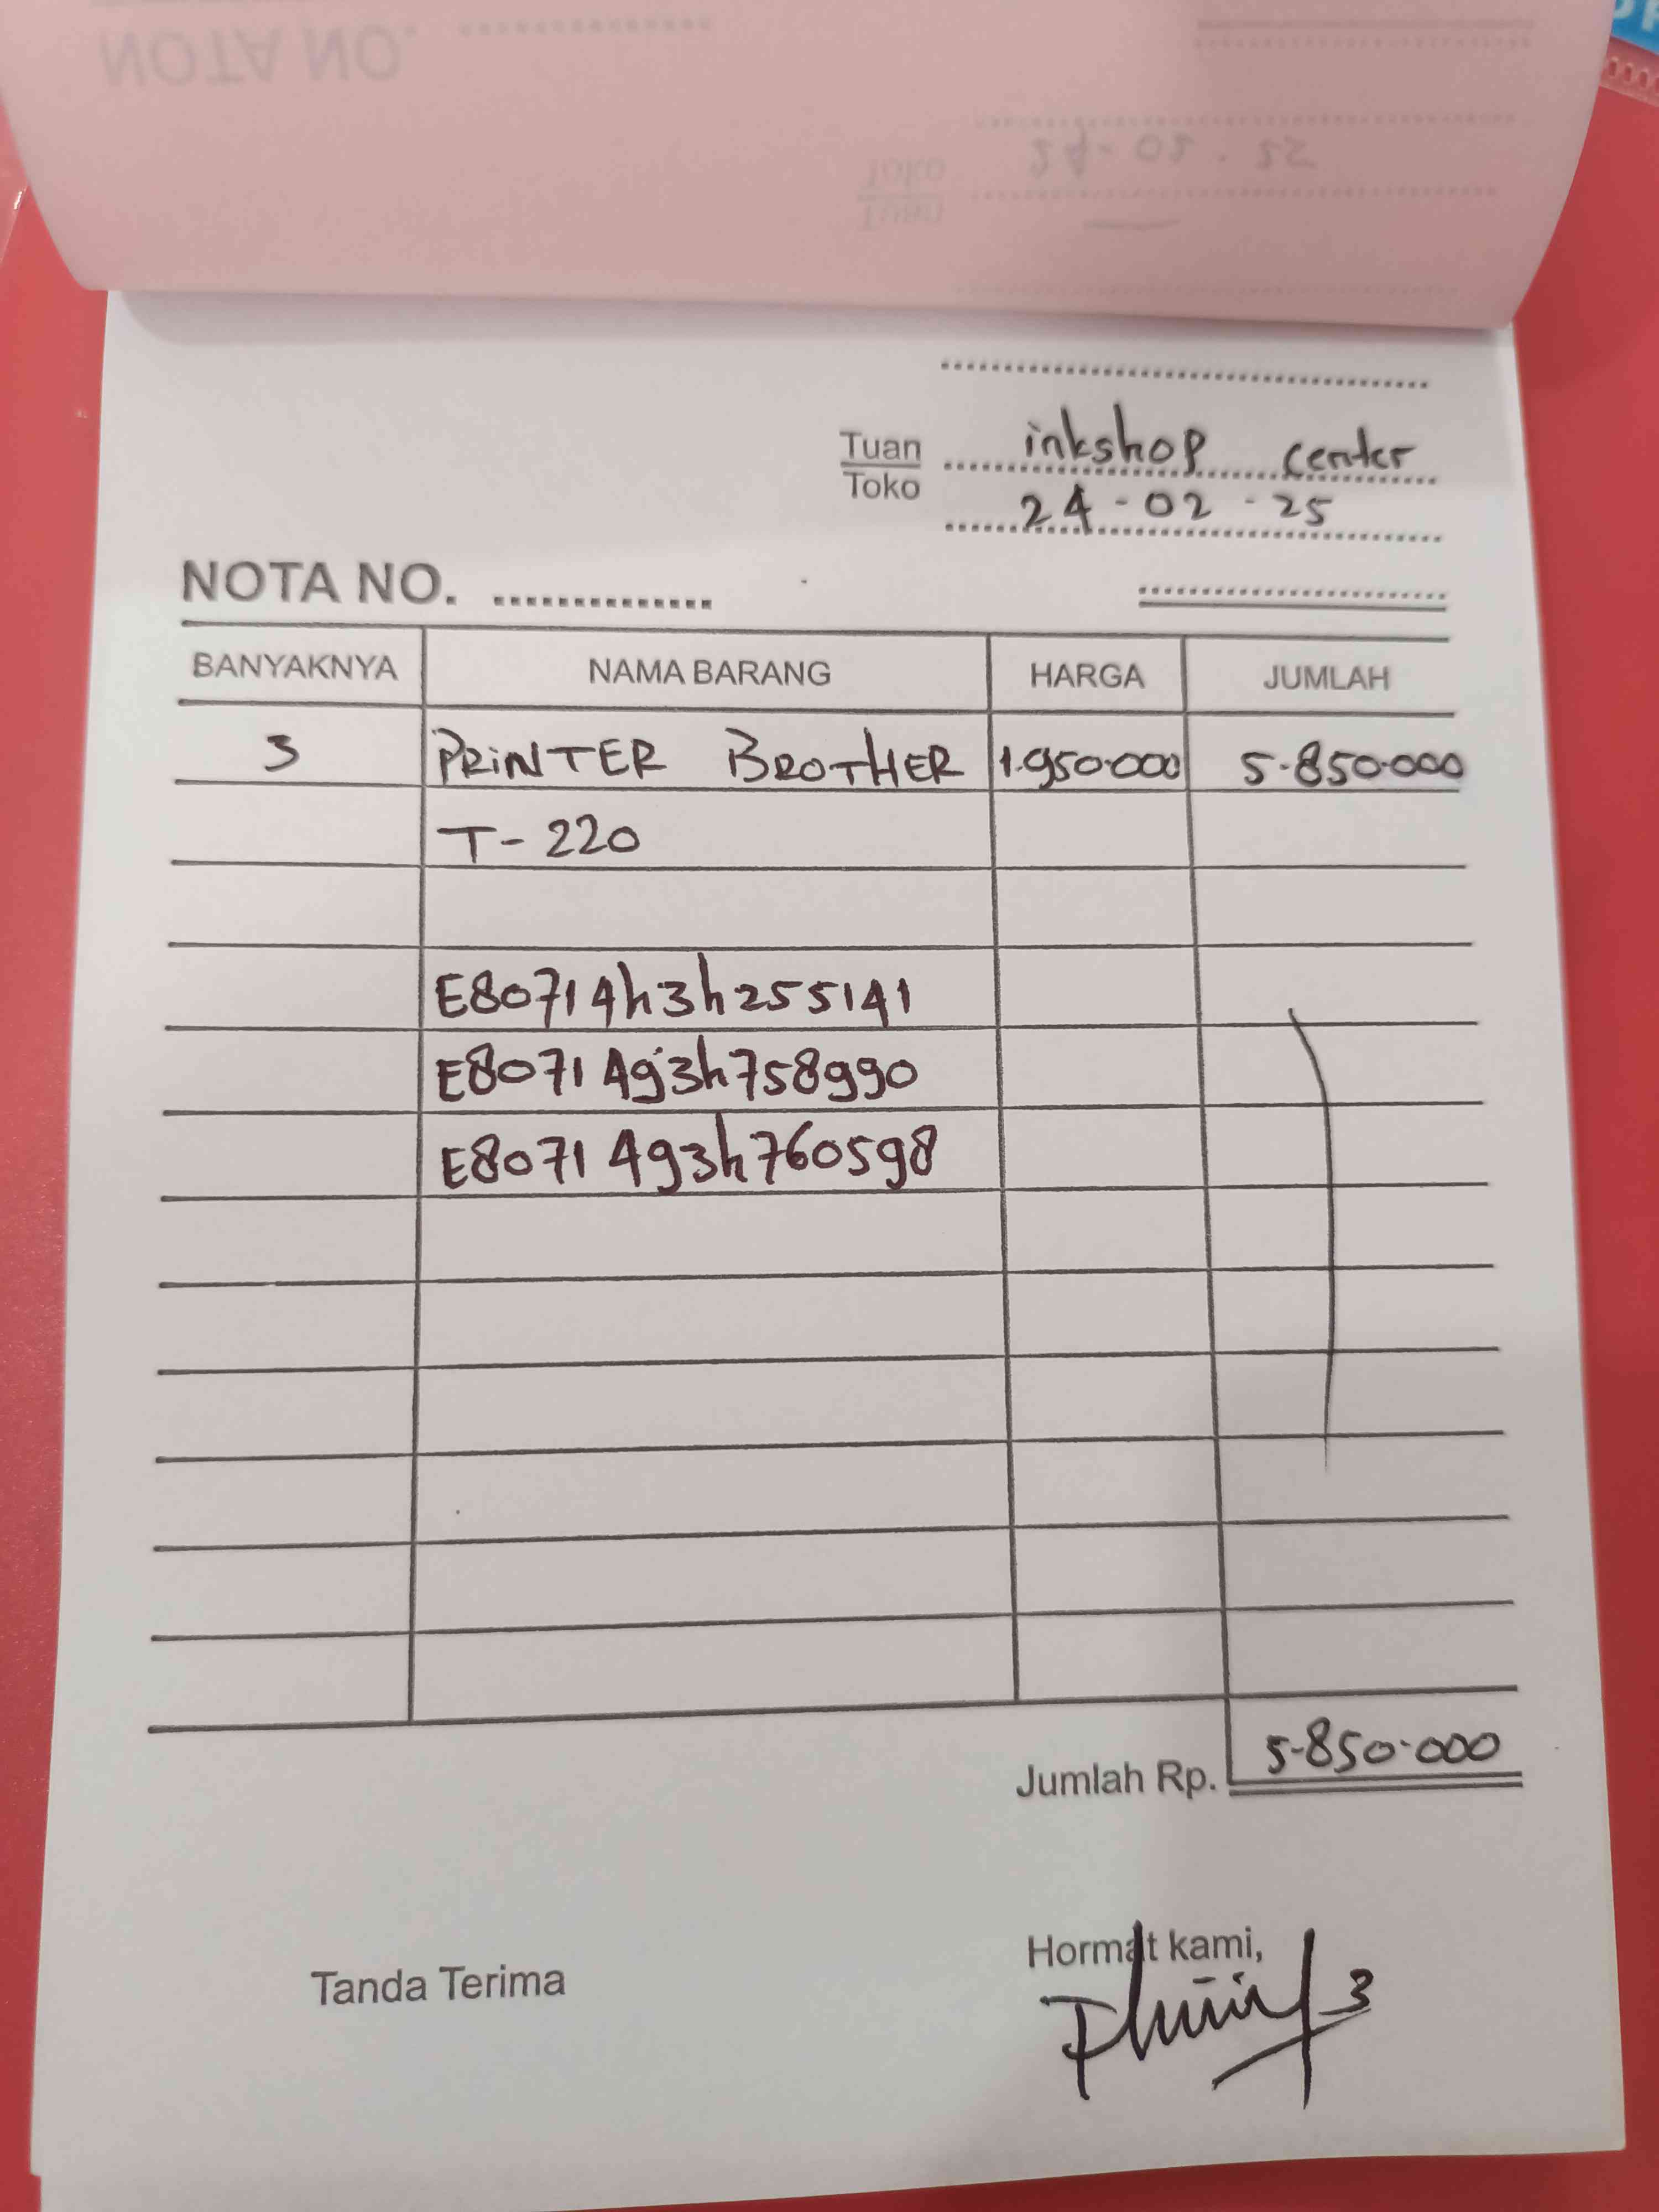 NOTA NO.
24-02-25
Toko
Tuan
Tuan inkshop center
Toko 24-02-25
NOTA NO.
BANYAKNYA NAMA BARANG HARGA JUMLAH
3 PRiNTER BROTHER 1.950.000 5.850.000
T-220
E80714h3h255141
E80714g3h758990
E80714g3h760598
Jumlah Rp. 5.850.000
Tanda Terima Hormat kami,